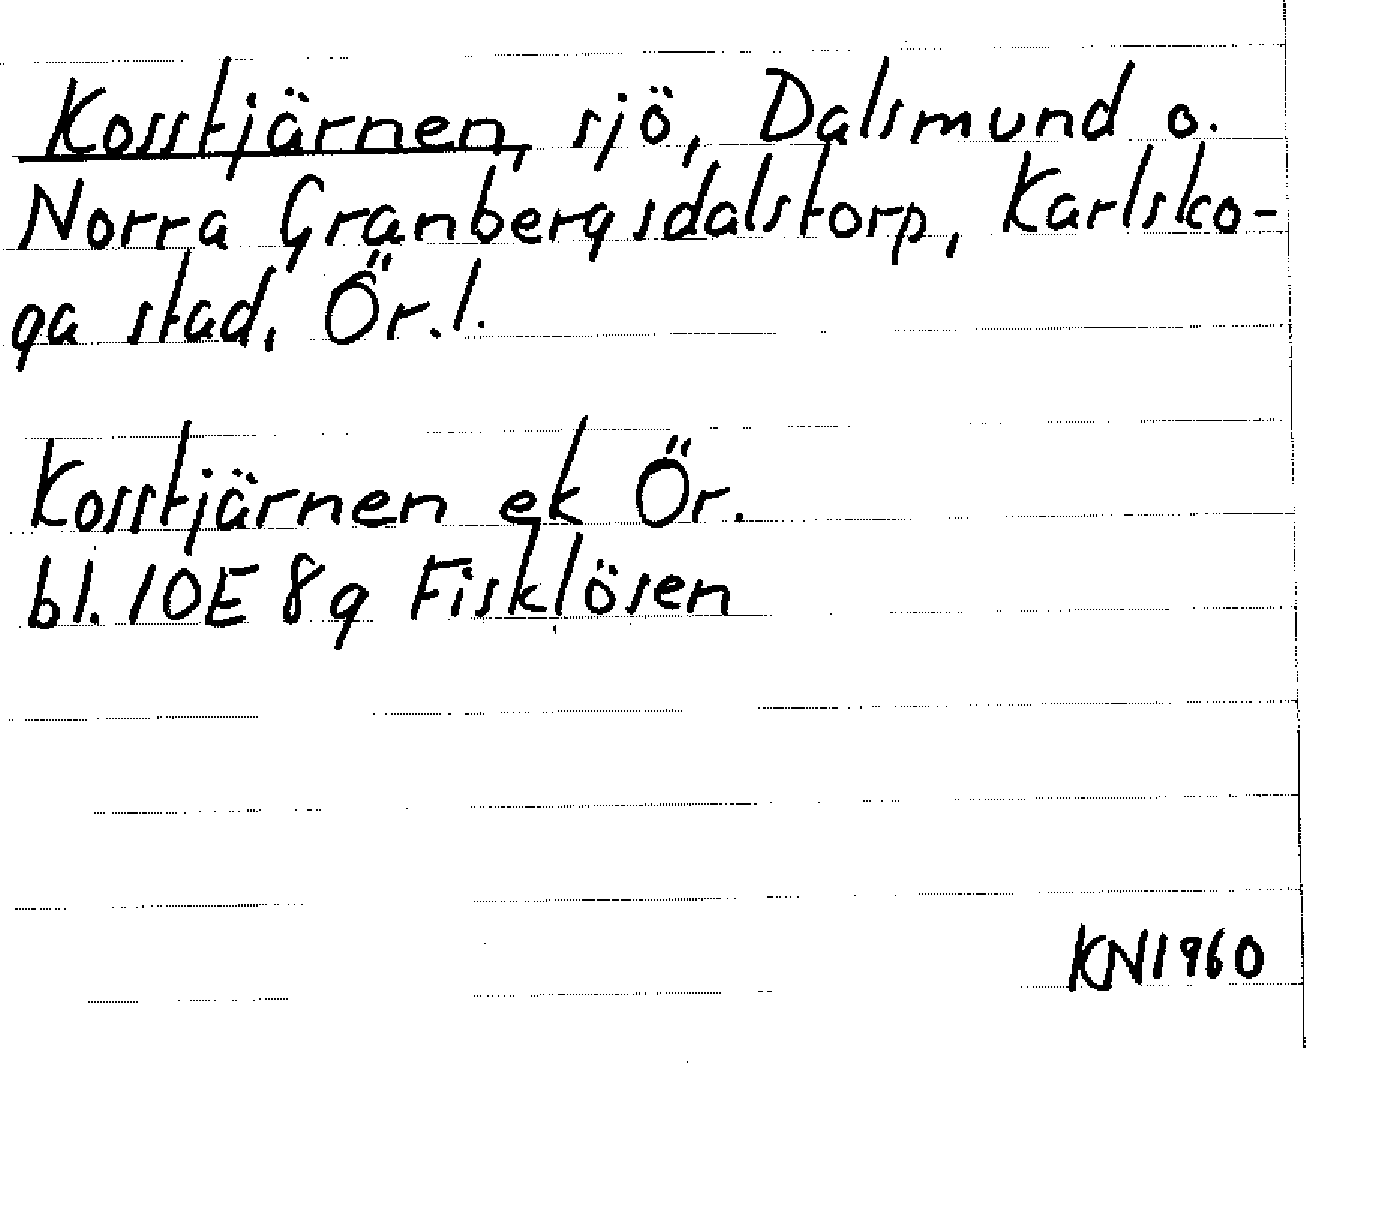 Kosstjärnen, sjö, Dalsmund o.
Norra Granbergsdalstorp, Karlsko-
ga stad, Ör.l.
Kosstjärnen ek Ör.
bl. 10E 8g Fisklösen
KN1960